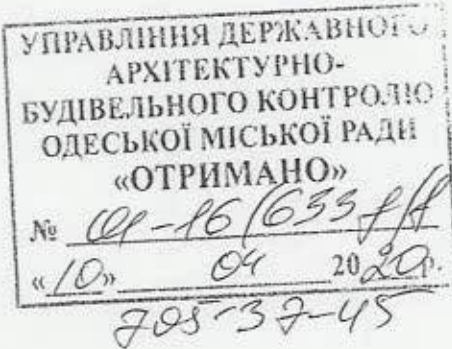 УПРАВЛІННЯ ДЕРЖАВНОГО
АРХІТЕКТУРНО-
БУДІВЕЛЬНОГО КОНТРОЛЮ
ОДЕСЬКОЇ МІСЬКОЇ РАДИ
«ОТРИМАНО»
№ 01-16/633
«10» 04 2020р.
705-37-45